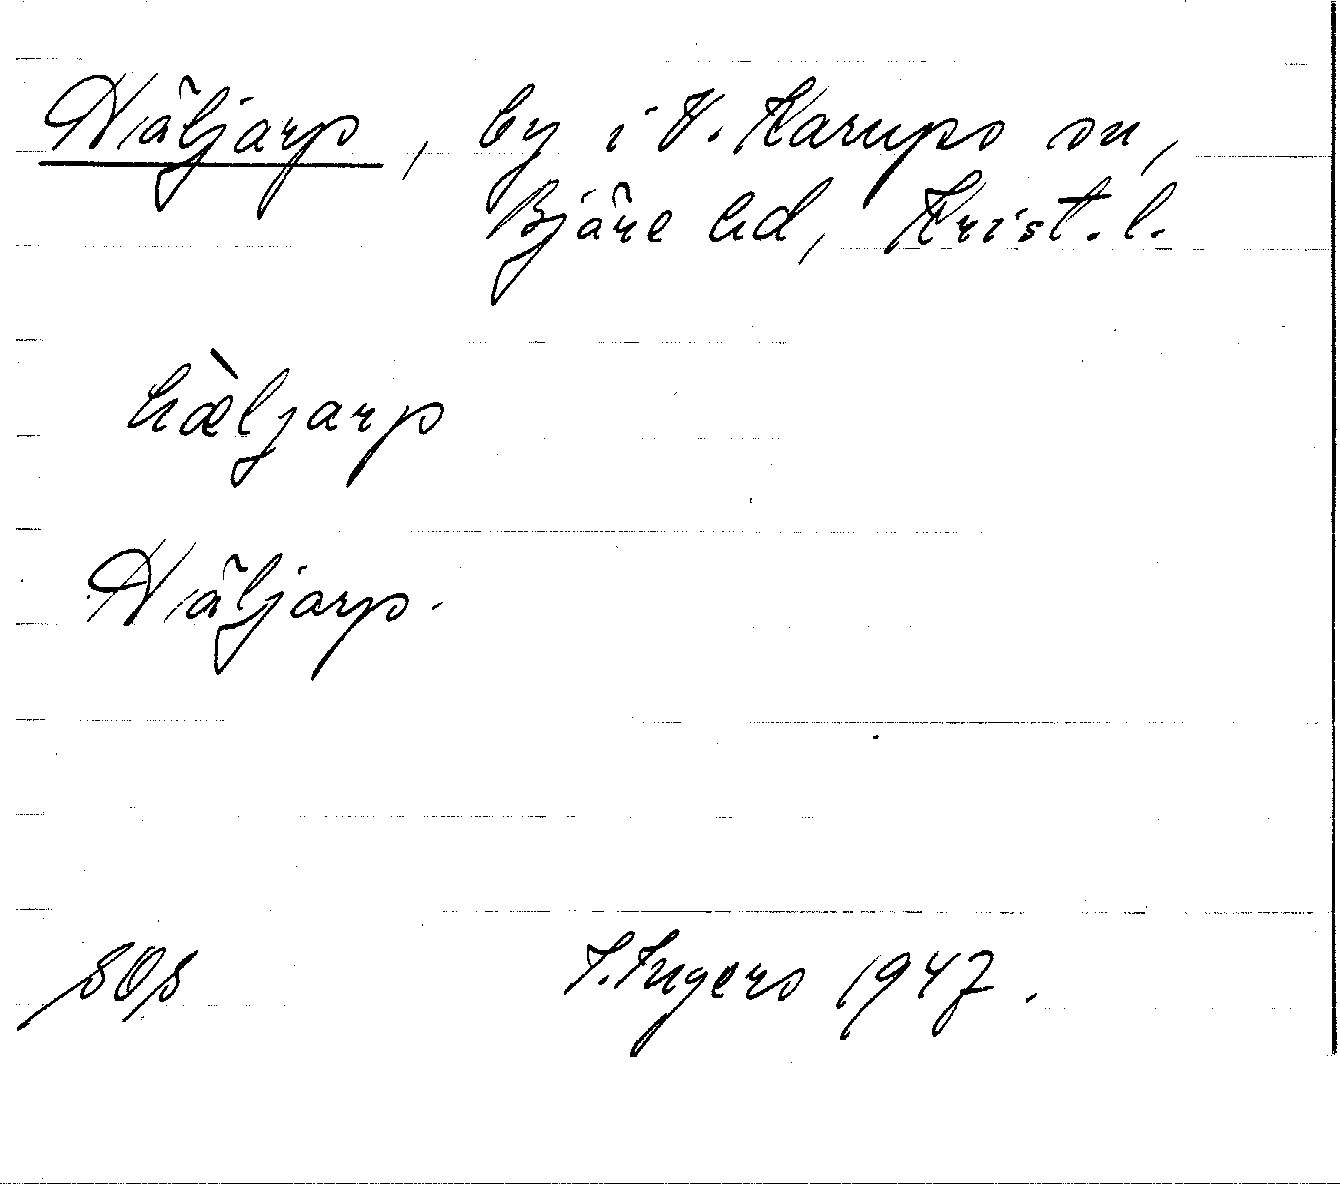 Häljarp, by i V. Karups sn,
Bjäre hd, Krist. l.
hæ̀ljarp
Häljarp.
I. Ingers 1947.